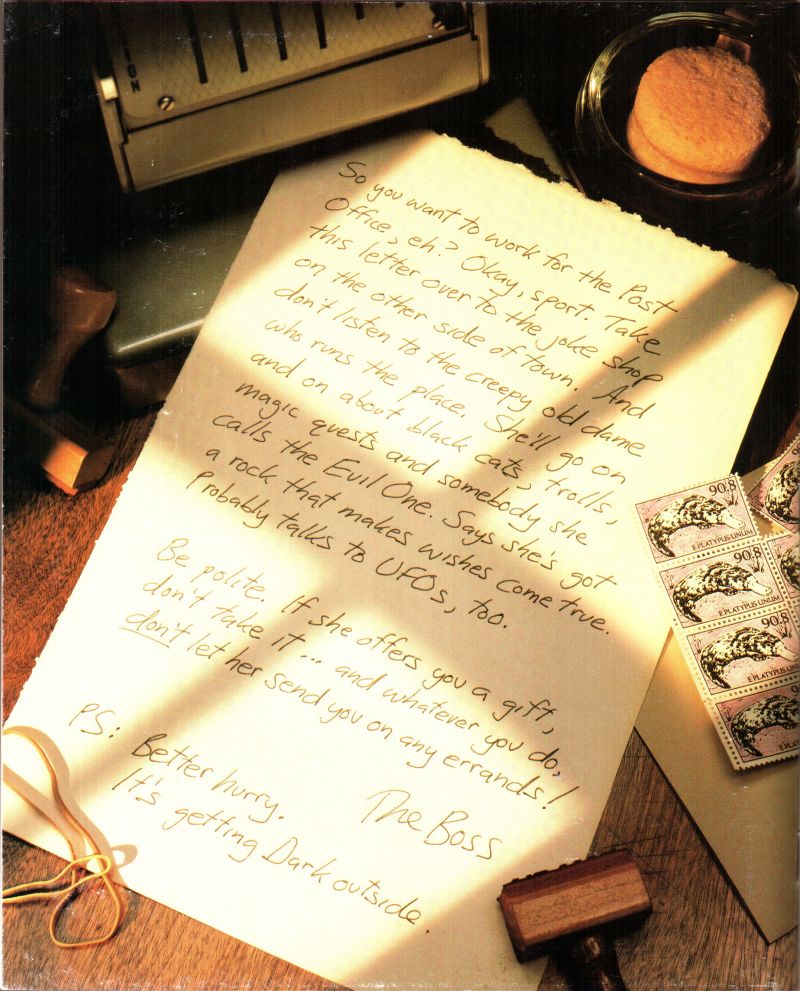 So you want to work for the Post
Office, eh? Okay, sport. Take
this letter over to the joke shop
on the other side of town. And
don't listen to the creepy old dame
who runs the place. She'll go on
and on about black cats, trolls,
magic quests and somebody she
calls the Evil One. Says she's got
a rock that makes wishes come true.
Probably talks to UFOs, too.
Be polite. If she offers you a gift,
don't take it... and whatever you do,
don't let her send you on any errands!
The Boss
PS: Better hurry.
It's getting Dark outside.
90.8
E PLATYPUS UNUM
90.8
E PLATYPUS UNUM
90.8
E PLATYPUS UNUM
90.8
E PLATYPUS UNUM